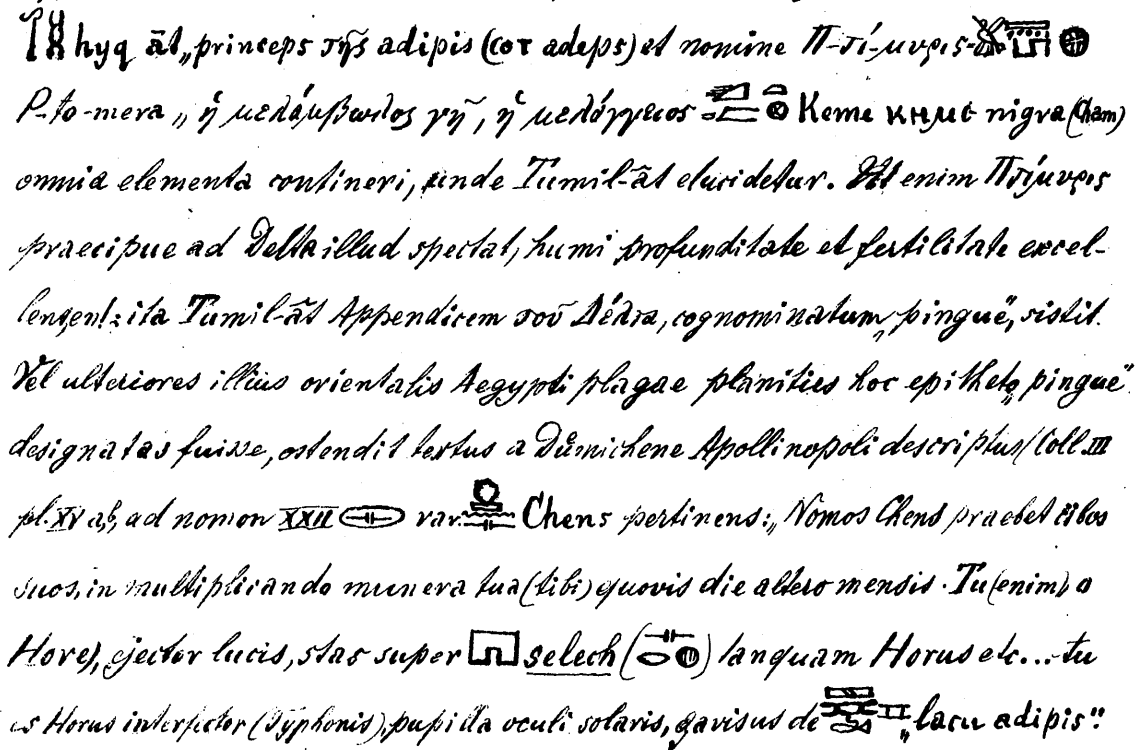 hyq āt „princeps τῆς adipis (ⲥⲟⲧ adeps) et nomine Π-τί-μυρις-
P-to-mera „ἡ μελάμβωλος γῆ, ἡ μελάγγειος Keme ⲕⲏⲙⲉ nigra (Cham)
omnia elementa contineri, unde Tumil-ât elucidetur. Ut enim Πτίμυρις
praecipue ad Delta illud spectat, humi profunditate et fertilitate excel-
lens, ita Tumil-ât Appendicem τοῦ Δέλτα, cognominatum „pingue“, sistit.
Vel ulteriores illius orientalis Aegypti plagae planities hoc epitheto „pingue“
designatas fuisse, ostendit textus a Dümichene Apollinopoli descriptus (Coll. III
pl. XV a,b, ad nomon XXII var. Chens pertinens: „Nomos Chens praebet cibos
suos, in multiplicando munera tua (tibi) quovis die altero mensis. Tu (enim), o
Hore), ejector lucis, stas super selech ( ) tanquam Horus etc... tu
es Horus interfector (Typhonis), pupilla oculi solaris, gavisus de „lacu adipis“.